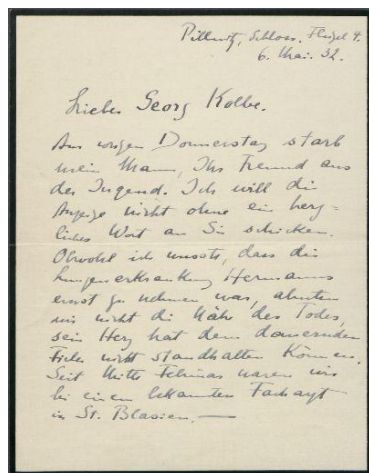 Pillnitz, Schloss. Flügel 4.
6. Mai. 32.
Lieber Georg Kolbe.
Am vorigen Donnerstag starb
mein Mann, Ihr Freund aus
der Jugend. Ich will die
Anzeige nicht ohne ein herz-
liches Wort an Sie schicken.
Obwohl ich wusste, dass die
Lungenerkrankung Hermanns
ernst zu nehmen war, ahnten
wir nicht die Nähe des Todes,
sein Herz hat dem dauernden
Fieber nicht standhalten können.
Seit Mitte Februar waren wir
bei einem bekannten Facharzt
in St. Blasien. —